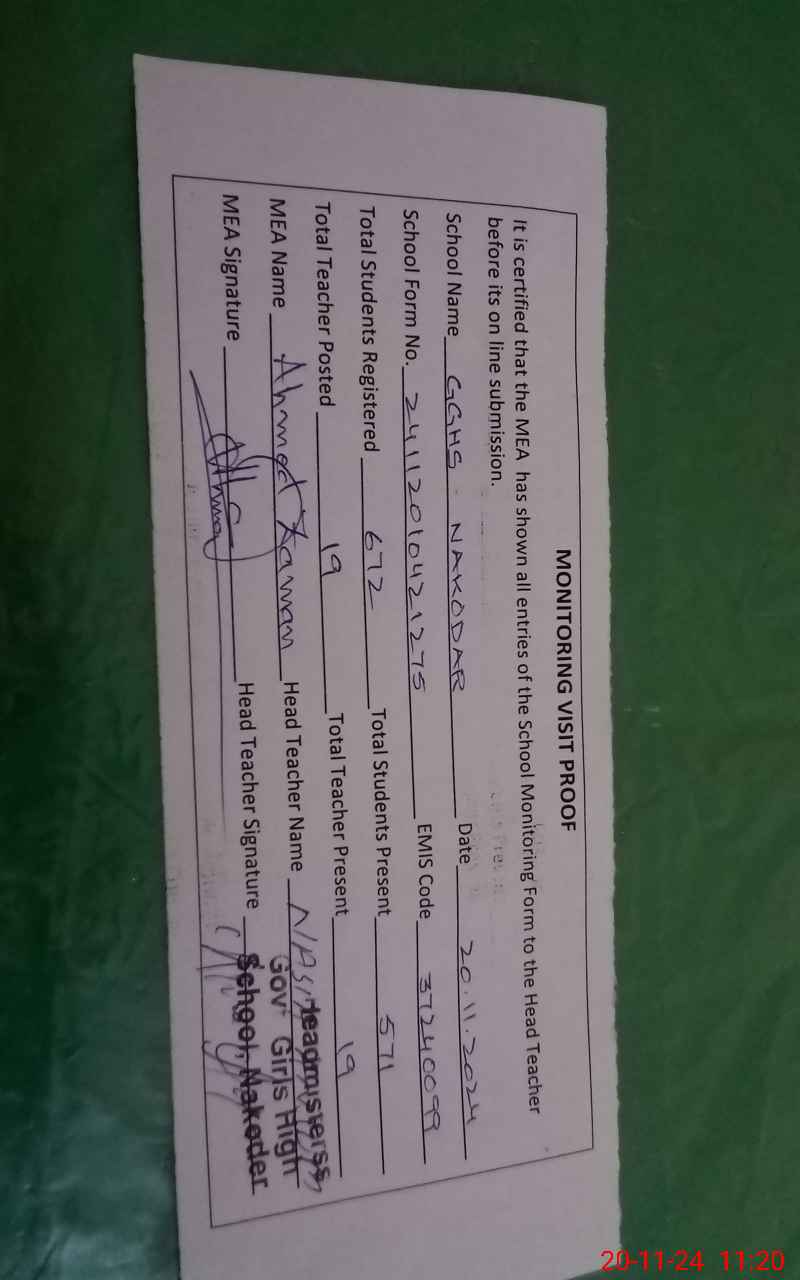 MONITORING VISIT PROOF
It is certified that the MEA has shown all entries of the School Monitoring Form to the Head Teacher
before its on line submission.
School Name GGHS NAKODAR Date 20.11.2024
School Form No. 24112010421275 EMIS Code 37240099
Total Students Registered 672 Total Students Present 571
Total Teacher Posted 19 Total Teacher Present 19
MEA Name Ahmed Zaman Head Teacher Name
MEA Signature Head Teacher Signature
Headmisterss
Gov Girls High
School, Nakoder
20-11-24 11:20